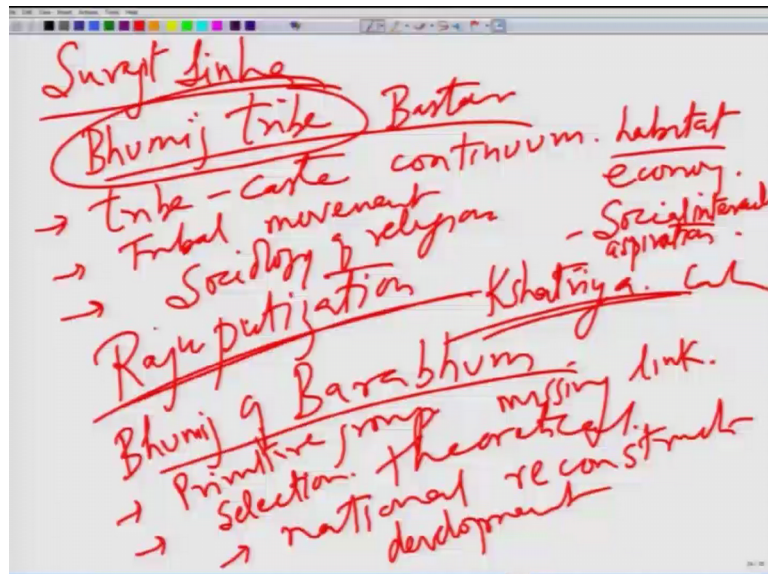 Surajt Sinha
Bhumij tribe Bastar
→ tribe - caste continuum. habitat
economy.
→ Tribal movement
- Social interact
aspiration.
→ Sociology of religion
Rajuputization Kshatriya.
Bhumij of Barabhum.
→ Primitive group missing link.
→ Selection. theoretical.
→ national reconstruct
development